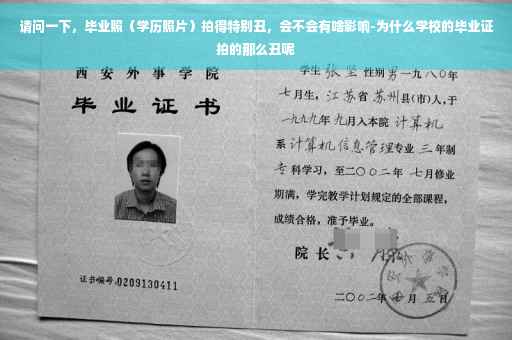 请问一下，毕业照（学历照片）拍得特别丑，会不会有啥影响-为什么学校的毕业证
拍的那么丑呢
西安外事学院
毕业证书
证书编号:0209130411
学生张坚性别男一九八〇年
七月生，江苏省苏州县(市)人,于
一九九九年九月入本院计算机
系计算机信息管理专业三年制
专科学习，至二〇〇二年七月修业
期满，学完教学计划规定的全部课程，
成绩合格，准予毕业。
院长
二〇〇二年七月五日